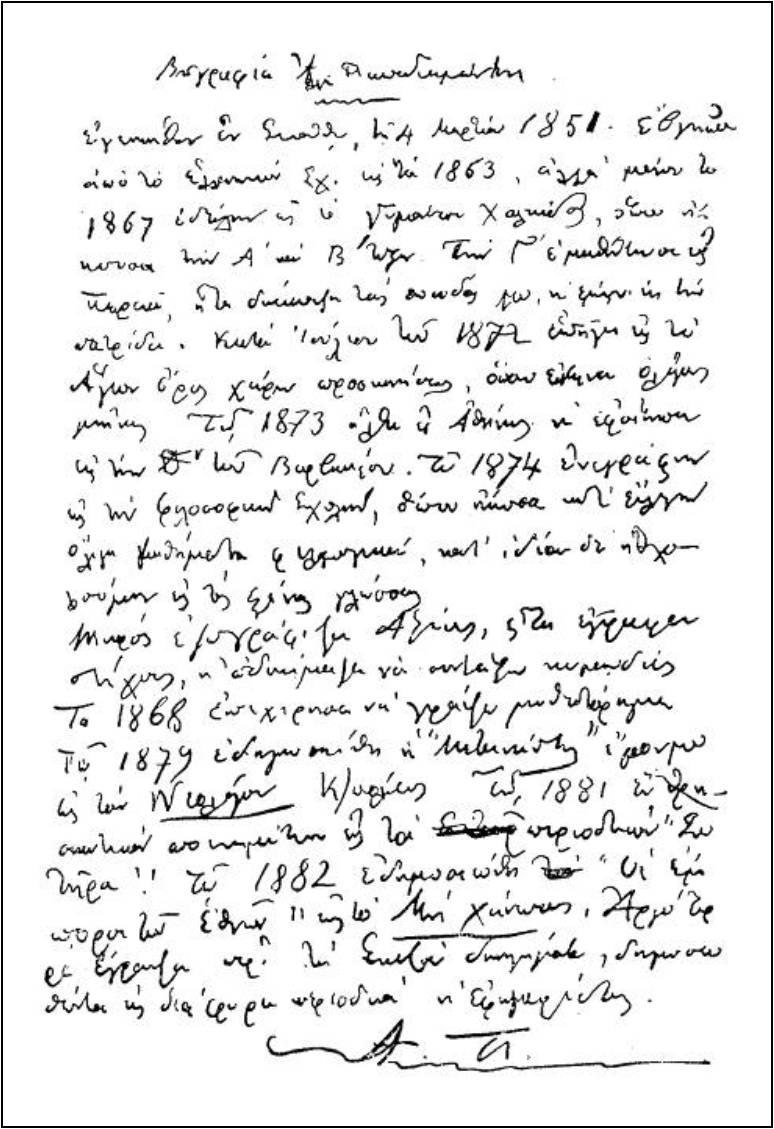 Βιογραφία Ἀλ. Παπαδιαμάντη
Ἐγεννήθην ἐν Σκιάθῳ, τῇ 4 Μαρτίου 1851. Ἐβγῆκα
ἀπὸ τὸ ἑλληνικὸν Σχ. εἰς τὰ 1863, ἀλλὰ μόνον τὸ
1867 ἐστάλην εἰς τὸ Γυμνάσιον Χαλκίδος, ὅπου ἤ-
κουσα τὴν Α΄ καὶ Β΄ τάξιν. Τὴν Γ΄ ἐμαθήτευσα εἰς
Πειραιᾶ, εἶτα διέκοψα τὰς σπουδάς μου, κ' ἔμεινα εἰς τὴν
πατρίδα. Κατὰ Ἰούλιον τοῦ 1872 ἐπῆγα εἰς τὸ
Ἅγιον Ὄρος χάριν προσκυνήσεως, ὅπου ἔμεινα ὀλίγους
μῆνας. Τῷ 1873 ἦλθα εἰς Ἀθήνας κ' ἐφοίτησα
εἰς τὴν Δ΄ τοῦ Βαρβακείου. Τῷ 1874 ἐνεγράφην
εἰς τὴν φιλοσοφικὴν Σχολήν, ὅπου ἤκουσα κατ' ἐκλογὴν
ὀλίγα μαθήματα φιλολογικά, κατ' ἰδίαν δὲ ἠσχο-
λούμην εἰς τὰς ξένας γλώσσας.
Μικρὸς ἐζωγράφιζα Ἁγίους, εἶτα ἔγραφα
στίχους, κ' ἐδοκίμαζα νὰ συντάξω κωμῳδίας
Τὸ 1868 ἐπεχείρησα νὰ γράψω μυθιστόρημα
Τῷ 1879 ἐδημοσιεύθη ἡ "Μετανάστις" ἔργον μου
εἰς τὸν Νεολόγον Κ/πόλεως Τῷ 1881 ἓν θρη-
σκευτικὸν ποιημάτιον εἰς τὸ περιοδικὸν "Σω
τῆρα". Τῷ 1882 ἐδημοσιεύθη "Οἱ ἔμ
ποροι τῶν Ἐθνῶν" εἰς τὸ Μὴ χάνεσαι. Ἀργότερ
α ἔγραψα περὶ τὰ ἑκατὸν διηγήματα, δημοσιευ
θέντα εἰς διάφορα περιοδικὰ κ' ἐφημερίδας.
Α. Π.